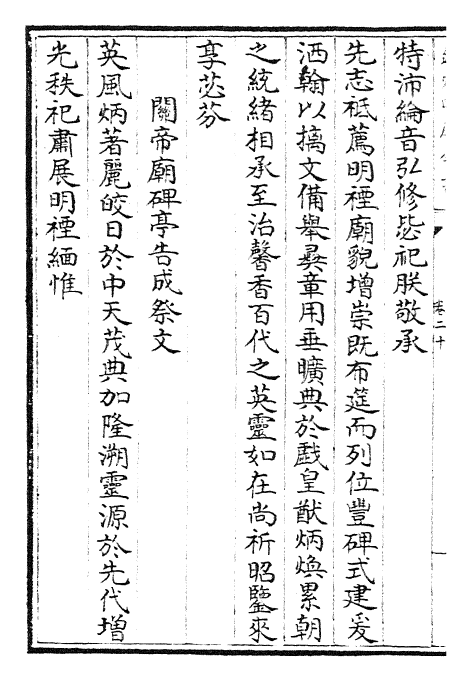 特沛綸音弘修毖祀朕敬承
先志祗薦明禋廟貌增崇既布筵而列位豐碑式建爰
洒翰以摛文備舉彞章用垂曠典於戲皇猷炳煥累朝
之統緒相承至治馨香百代之英靈如在尚祈昭鑒來
享苾芬
關帝廟碑亭告成祭文
英風炳著麗皎日於中天茂典加隆溯靈源於先代增
光秩祀肅展明禋緬惟
卷二十